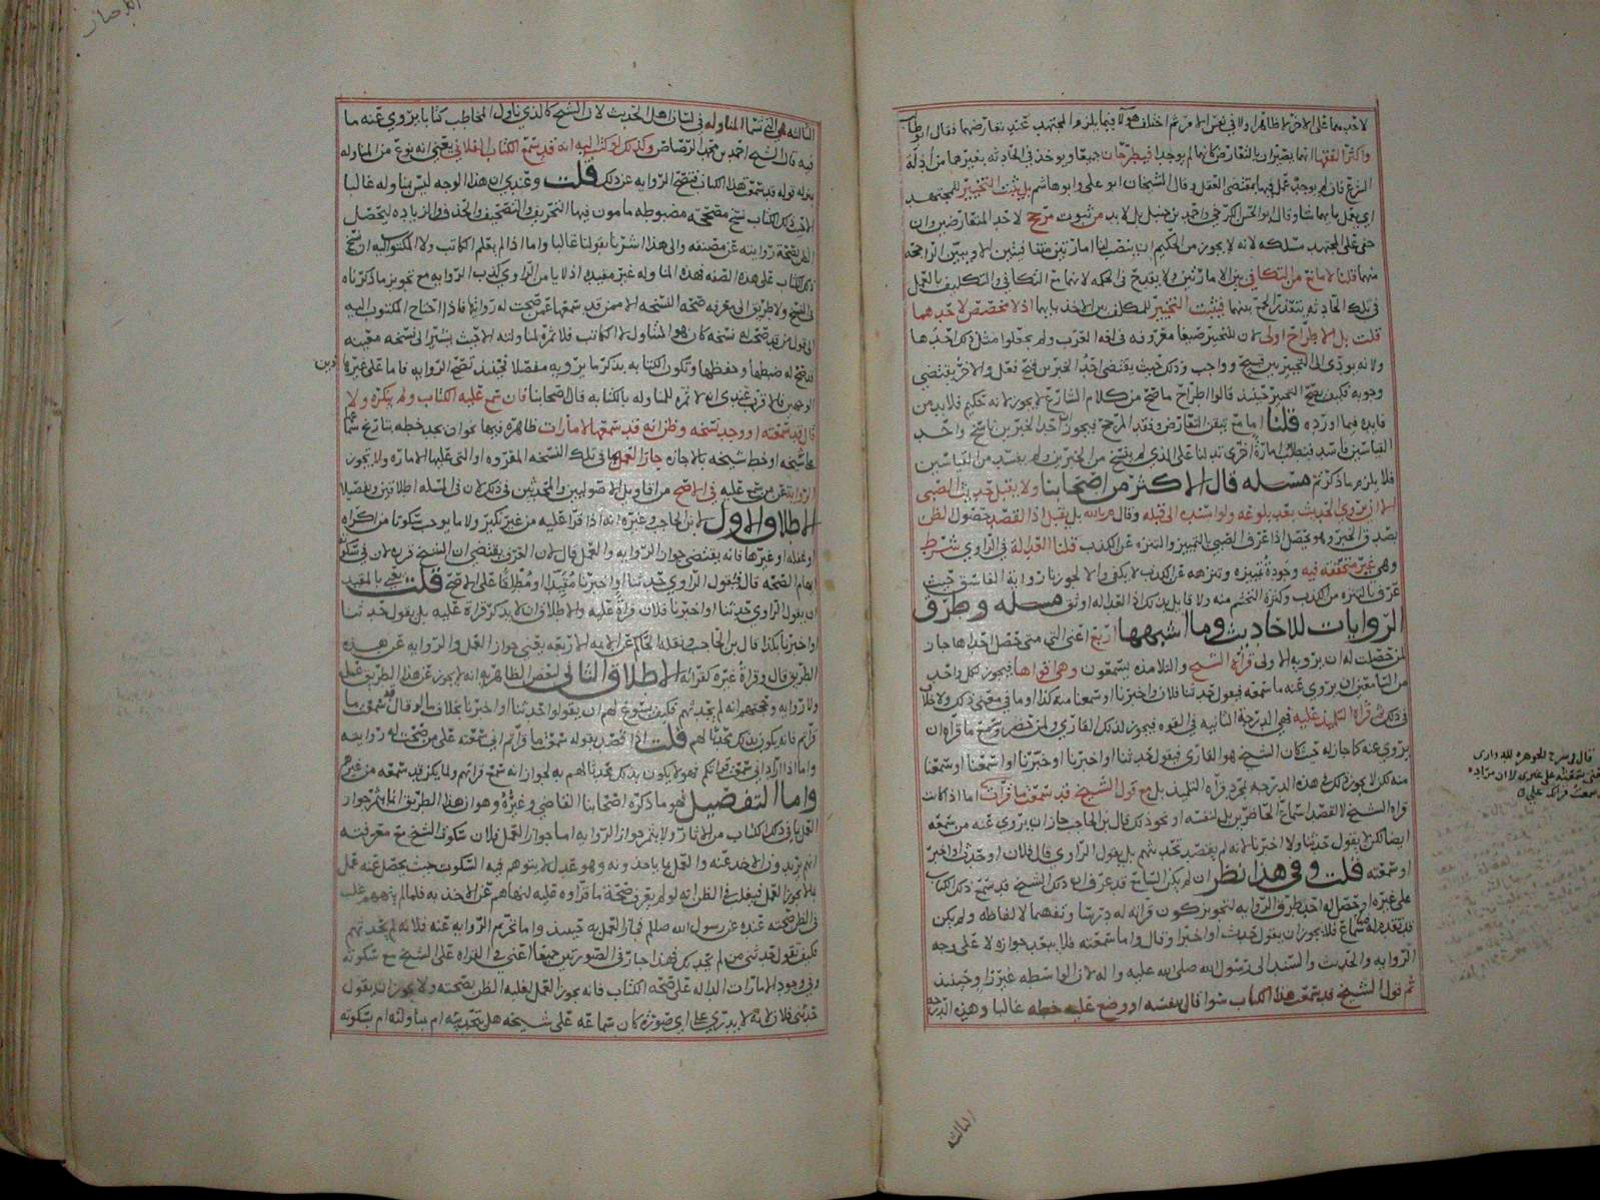 لاحدهما على الاخر لا ظاهرا ولا في نفس الامر ثم اختلف هؤلا فيما يلزم المجتهد عند تعارضهما فقال ابو طالب
واكثر الفقها انهما يصيران بالتعارض كانهما لم يوجدا فيطرحان جميعا ويوخذ في الحادثه بغيرهما من ادله
الشرع فان لم يوجد عمل فيها بمقتضى العقل وقال الشيخان ابو علي وابو هاشم بل يثبت التخيير للمجتهد
اي يعمل بايهما شا وقال ابو الحسن الكرخي واحمد بن حنبل بل لا بد من ثبوت مرجح لاحد المتعارضين وان
خفي على المجتهد مسلكه لانه لا يجوز من الحكيم ان ينصب لنا امارتين متنافيتين الا ويبين الراجحه
منهما قلنا لا مانع من التكافي بين الامارتين ولا يقدح في الحكمه لانه مع التكافي والتكليف بالعمل
في تلك الحادثه يتعذر الجمع بينهما فيثبت التخيير للمكلف بين الاخذ بايهما اذ لا مخصص لاحدهما
قلت بل الاطراح اولى لان للتخيير صيغا معروفه في لغه العرب ولم يجعلوا مثل ذلك احدها
ولانه يودي الى التخيير بين قبيح وواجب وذلك حيث يقتضي احد الخبرين قبح فعل والاخر يقتضي
وجوبه فكيف يصح التخيير حينئذ قالوا اطراح ما صح من كلام الشارع لا يجوز لانه حكيم فلا بد من
فايده فيما اورده قلنا اما مع تيقن التعارض وفقد المرجح فيجوز احد الخبرين ناسخ واحد
القياسين فاسد فيتطلب امارة اخرى تدلنا على الذي لم ينسخ من الخبرين ولم يفسد من القياسين
فلا يلزم ما ذكرتم مسله قال الاكثر من اصحابنا ولا يقبل حديث الصبي
الا ان يروي الحديث بعد بلوغه ولو اسنده الى قبله وقال م بالله بل يقبل اذ القصد حصول الظن
بصدق الخبر وهو يحصل اذا عرف الصبي بالتمييز والتنزه عن الكذب قلنا العدالة في الراوي شرط
وهي غير متحققه فيه وجودة تمييزه وتنزهه عن الكذب لا يكفي والا لجوزنا رواية الفاسق حيث
عرف بالتنزه من الكذب وكثرة التحشم منه ولا قايل بذلك اذ العداله اوثق مسله وطرق
الروايات للاحاديث وما اشبهها اربع اعني التي متى حصل احداها جاز
لمن حصلت له ان يرويه الاولى قراة الشيخ والتلامذه يسمعون وهي اقواها فيجوز لكل واحد
من السامعين ان يروي عنه ما سمعه فيقول حدثنا فلان واخبرنا او سمعنا منه كذا او ما في معنى ذلك ولا خلاف
في ذلك ثم قراة التلميذ عليه فهي الدرجة الثانيه في القوه فيجوز لذلك القاري ولمن حضر وسمع ما قراه ان
يروي عنه كما جاز له حيث كان الشيخ هو القاري فيقول حدثنا او اخبرنا او خبرنا او اسمعنا او سمعنا
منه لكن لا يجوز ذلك في هذه الدرجه بمجرد قراة التلميذ بل مع قول الشيخ قد سمعت ما قرات اما اذا كانت
قراة الشيخ لا لقصد اسماع الحاضرين بل لنفسه او نحو ذلك قال بن الحاجب جاز ان يروي عنه من سمعه
ايضا لكن لا يقول حدثنا ولا اخبرنا لانه لم يقصد تحديثهم بل يقول الراوي قال فلان او حدث او اخبر
او سمعته قلت وفي هذا نظر ان لم يكن السامع قد عرف ان ذلك الشيخ قد سمع ذلك الكتاب
على غيره او حصل له احد طرق الروايه لتجويز كون قراته له درسا وتفهما لالفاظه ولم يكن
قد تقدم له سماع فلا يجوز ان يقول حدث او اخبر او قال واما سمعته فلا يبعد جوازه لا على وجه
الروايه والحديث والسند الى رسول الله صلى الله عليه واله لان الواسطه غيرنا وحينئذ
ثم قول الشيخ قد سمعت هذا الكتاب سوا قال بنفسه او وضع عليه خطه غالبا وهذه الدرجه
الثالثه
قال في شرح الجوهره للدواري
سمعت قراتك علي
الثالثه هي التي تسما المناوله في لسان اهل الحديث لان الشيخ كالذي ناول المخاطب كتابا يروي عنه ما
فيه قال الشيخ احمد بن محمد الرصاص وكذلك لو كتب اليه انه قد سمع الكتاب الفلاني يعني انه نوع من المناوله
بمنزله قوله قد سمعت هذا الكتاب فتصح الروايه عن ذلك قلت وعندي ان هذا الوجه ليس بمناوله غالبا
الا في ذلك الكتاب نسخ مصححه مضبوطه مامون فيها التحريف والتصحيف والحذف والزياده ليحصل
الظن بصحة روايته عن مصنفه والى هذا اشرنا بقولنا غالبا واما اذا لم يعلم الكاتب ولا المكتوب اليه ان نسخ
ذلك الكتاب على هذه الصفه فهذه المناوله غير مفيده اذ لا يامن الراوي كذب الروايه مع تجويز ما ذكرناه
في النسخ ولا طريق الى معرفه صحه النسخه الا ممن قد سمعها عمن صحت له روايتها فاذا احتاج المكتوب اليه
الى قول من قد صحت له نسخه كان هو المناول لا الكاتب فلا ثمره لمناولته الا حيث يشير الى نسخه معينه
قد صح له ضبطها وحفظها وتكون الكتابه بذكر ما يرويه مفصلا فحينئذ تصح الروايه فاما على غير
دين
الوجهين فالاقرب عندي انه لا ثمره للمناوله بالكتابه قال اصحابنا فان سمع عليه الكتاب ولم ينكره ولا
قال قد سمعته او وجد نسخه وظن انه قد سمعها لامارات ظاهره فيها نحو ان يجد خطه بتاريخ سماعها
على شيخه او خط شيخه بالاجازه جاز العمل بما في تلك النسخه المقروه او التي غلبتها الاماره ولا يجوز
الروايه عن من سمع عليه في الاصح من اقاويل الاصوليين والمحدثين في ذلك لان في المسله اطلاقين وتفصيلا
الاطلاق الاول لابن الحاجب وغيره انه اذا قرا عليه من غير نكير ولا ما يوجب سكوتا من اكراه
او غفله او غيرها فانه يقتضي جواز الروايه والعمل قال لان العرف يقتضي ان الشيخ قرره لان في سكوته
ايهام الصحه قال فيقول الراوي حدثنا او اخبرنا مقيدا او مطلقا على الاصح قلت يعني بالمقيد
ان يقول الراوي حدثنا او اخبرنا فلان قراة عليه والاطلاق ان لا يذكر قراة عليه بل يقول حدثنا
او اخبرنا بكذا قال بن الحاجب ونقله الحاكم عن الايمه الاربعه يعني جواز العمل والروايه عن هذه
الطريق قال وقراة غيره كقراته الاطلاق الثاني لبعض الظاهريه انه لا يجوز عن هذا الطريق عمل
ولا روايه وحجتهم انه لم يحدثهم فكيف يسوغ لهم ان يقولوا حدثنا او اخبرنا بخلاف ما لو قال قد سمعت ما
قراتم فانه يكون بذلك محدثا لهم قلت اذا قصد بقوله سمعت ما قراتم اني سمعته على من صحت له روايته
واما اذا اراد اني سمعت قراتكم فهو لا يكون بذلك محدثا لهم به لجواز انه سمع قراتهم ولما يكن قد سمعه من غيرهم
واما التفصيل فهو ما ذكره اصحابنا القاضي وغيره وهو ان هذا الطريق انما يثمر جواز
العمل بما في ذلك الكتاب من الاثار ولا يثمر جواز الروايه اما جواز العمل فلان سكوت الشيخ مع معرفته
انهم يريدون الاخذ عنه والعمل بما ياخذونه وهو عدل لا يتوهم فيه السكوت حيث يحصل عنه عمل
بما لا يجوز العمل فيغلب في الظن انه لو لم يعرف صحة ما قراوه عليه لنهاهم عن الاخذ به فلما لم ينههم غلب
في الظن صحته عنده عن رسول الله صللم فجاز العمل به حينئذ واما تحريم الروايه عنه فلانه لم يحدثهم
فكيف نقول حدثني من لم يحدثك فهذا جار في الصورتين جميعا اعني في القراه على الشيخ مع سكوته
وفي وجود الامارات الداله على صحة الكتاب فانه يجوز العمل لغلبه الظن بصحته ولا يجوز ان يقول
حدثني فلان لانه لا يدري على اي صوره كان سماعه على شيخه هل بتحديثه ام بمناولته ام بسكوته